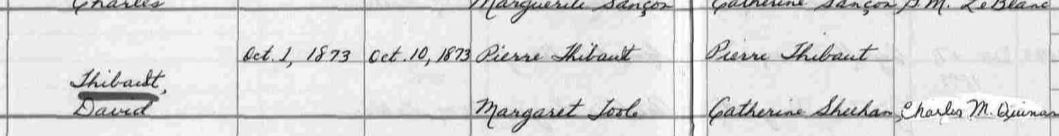 Charles Marguerite Sançon Catherine Sançon P.M. LeBlanc
Oct. 1, 1873 Oct. 10, 1873 Pierre Thibaut Pierre Thibaut
Thibaut,
David Margaret Toole Catherine Sheehan Charles M. Quinan